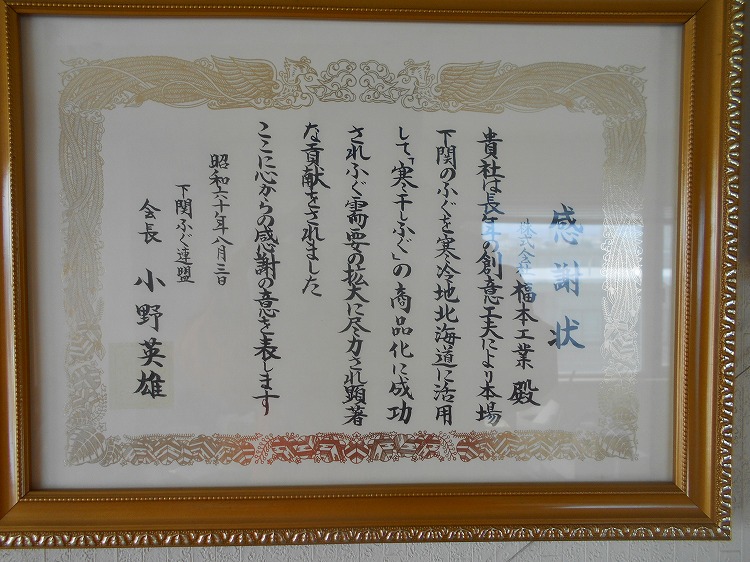 感謝状
株式会社 福本工業 殿
貴社は長年の創意工夫により本場
下関のふぐを寒冷地北海道に活用
して「寒干しふぐ」の商品化に成功
されふぐ需要の拡大に尽力され顕著
な貢献をされました
ここに心からの感謝の意を表します
昭和六十年八月三日
下関ふぐ連盟
会長 小野英雄